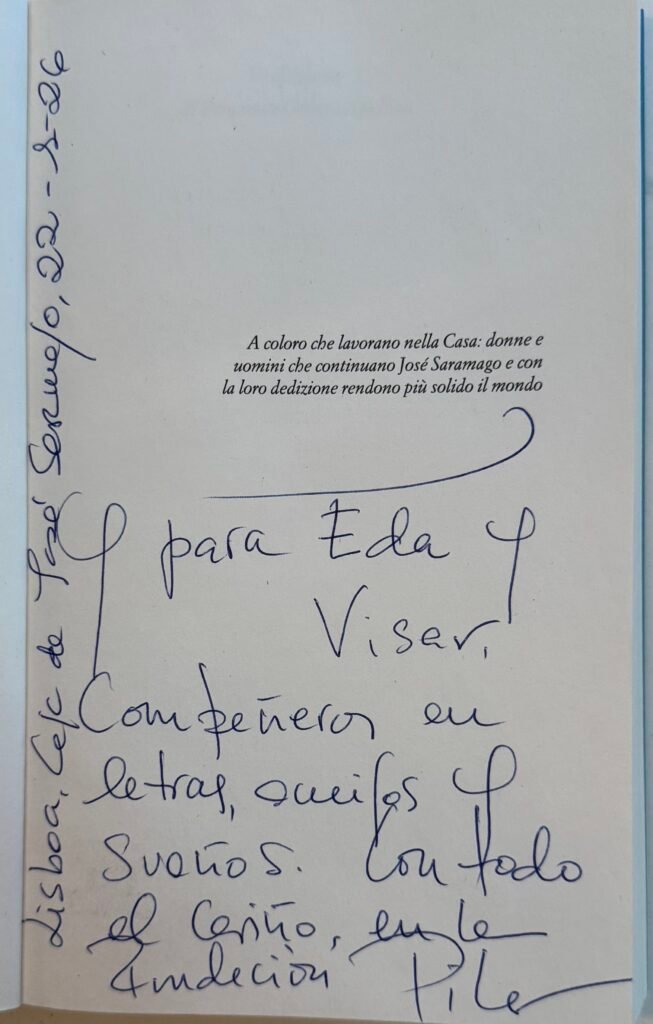 A coloro che lavorano nella Casa: donne e
uomini che continuano José Saramago e con
la loro dedizione rendono più solido il mondo
Y para Eda y
Visar.
Compañeros en
letras, amigos y
sueños. Con todo
el cariño, en la
Fundación Pilar
Lisboa, Casa de José Saramago, 22-5-26